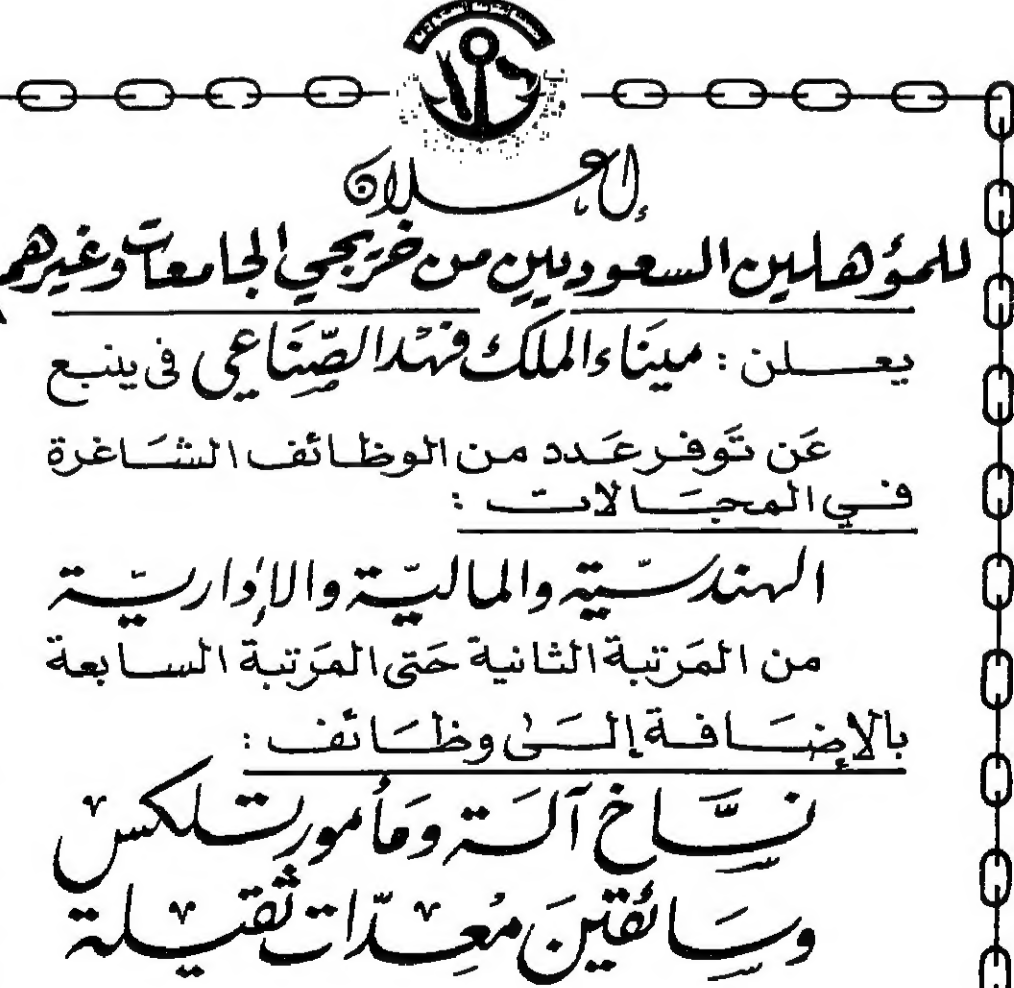 إعلان
للمؤهلين السعوديين من خريجي الجامعات وغيرهم
يعلن : ميناء الملك فهد الصناعي في ينبع
عن توفر عدد من الوظائف الشاغرة
في المجالات :
الهندسية والمالية والإدارية
من المرتبة الثانية حتى المرتبة السابعة
بالإضافة إلى وظائف :
نسّاخ آلة ومأمور تلكس
وسائقين معدّات ثقيلة